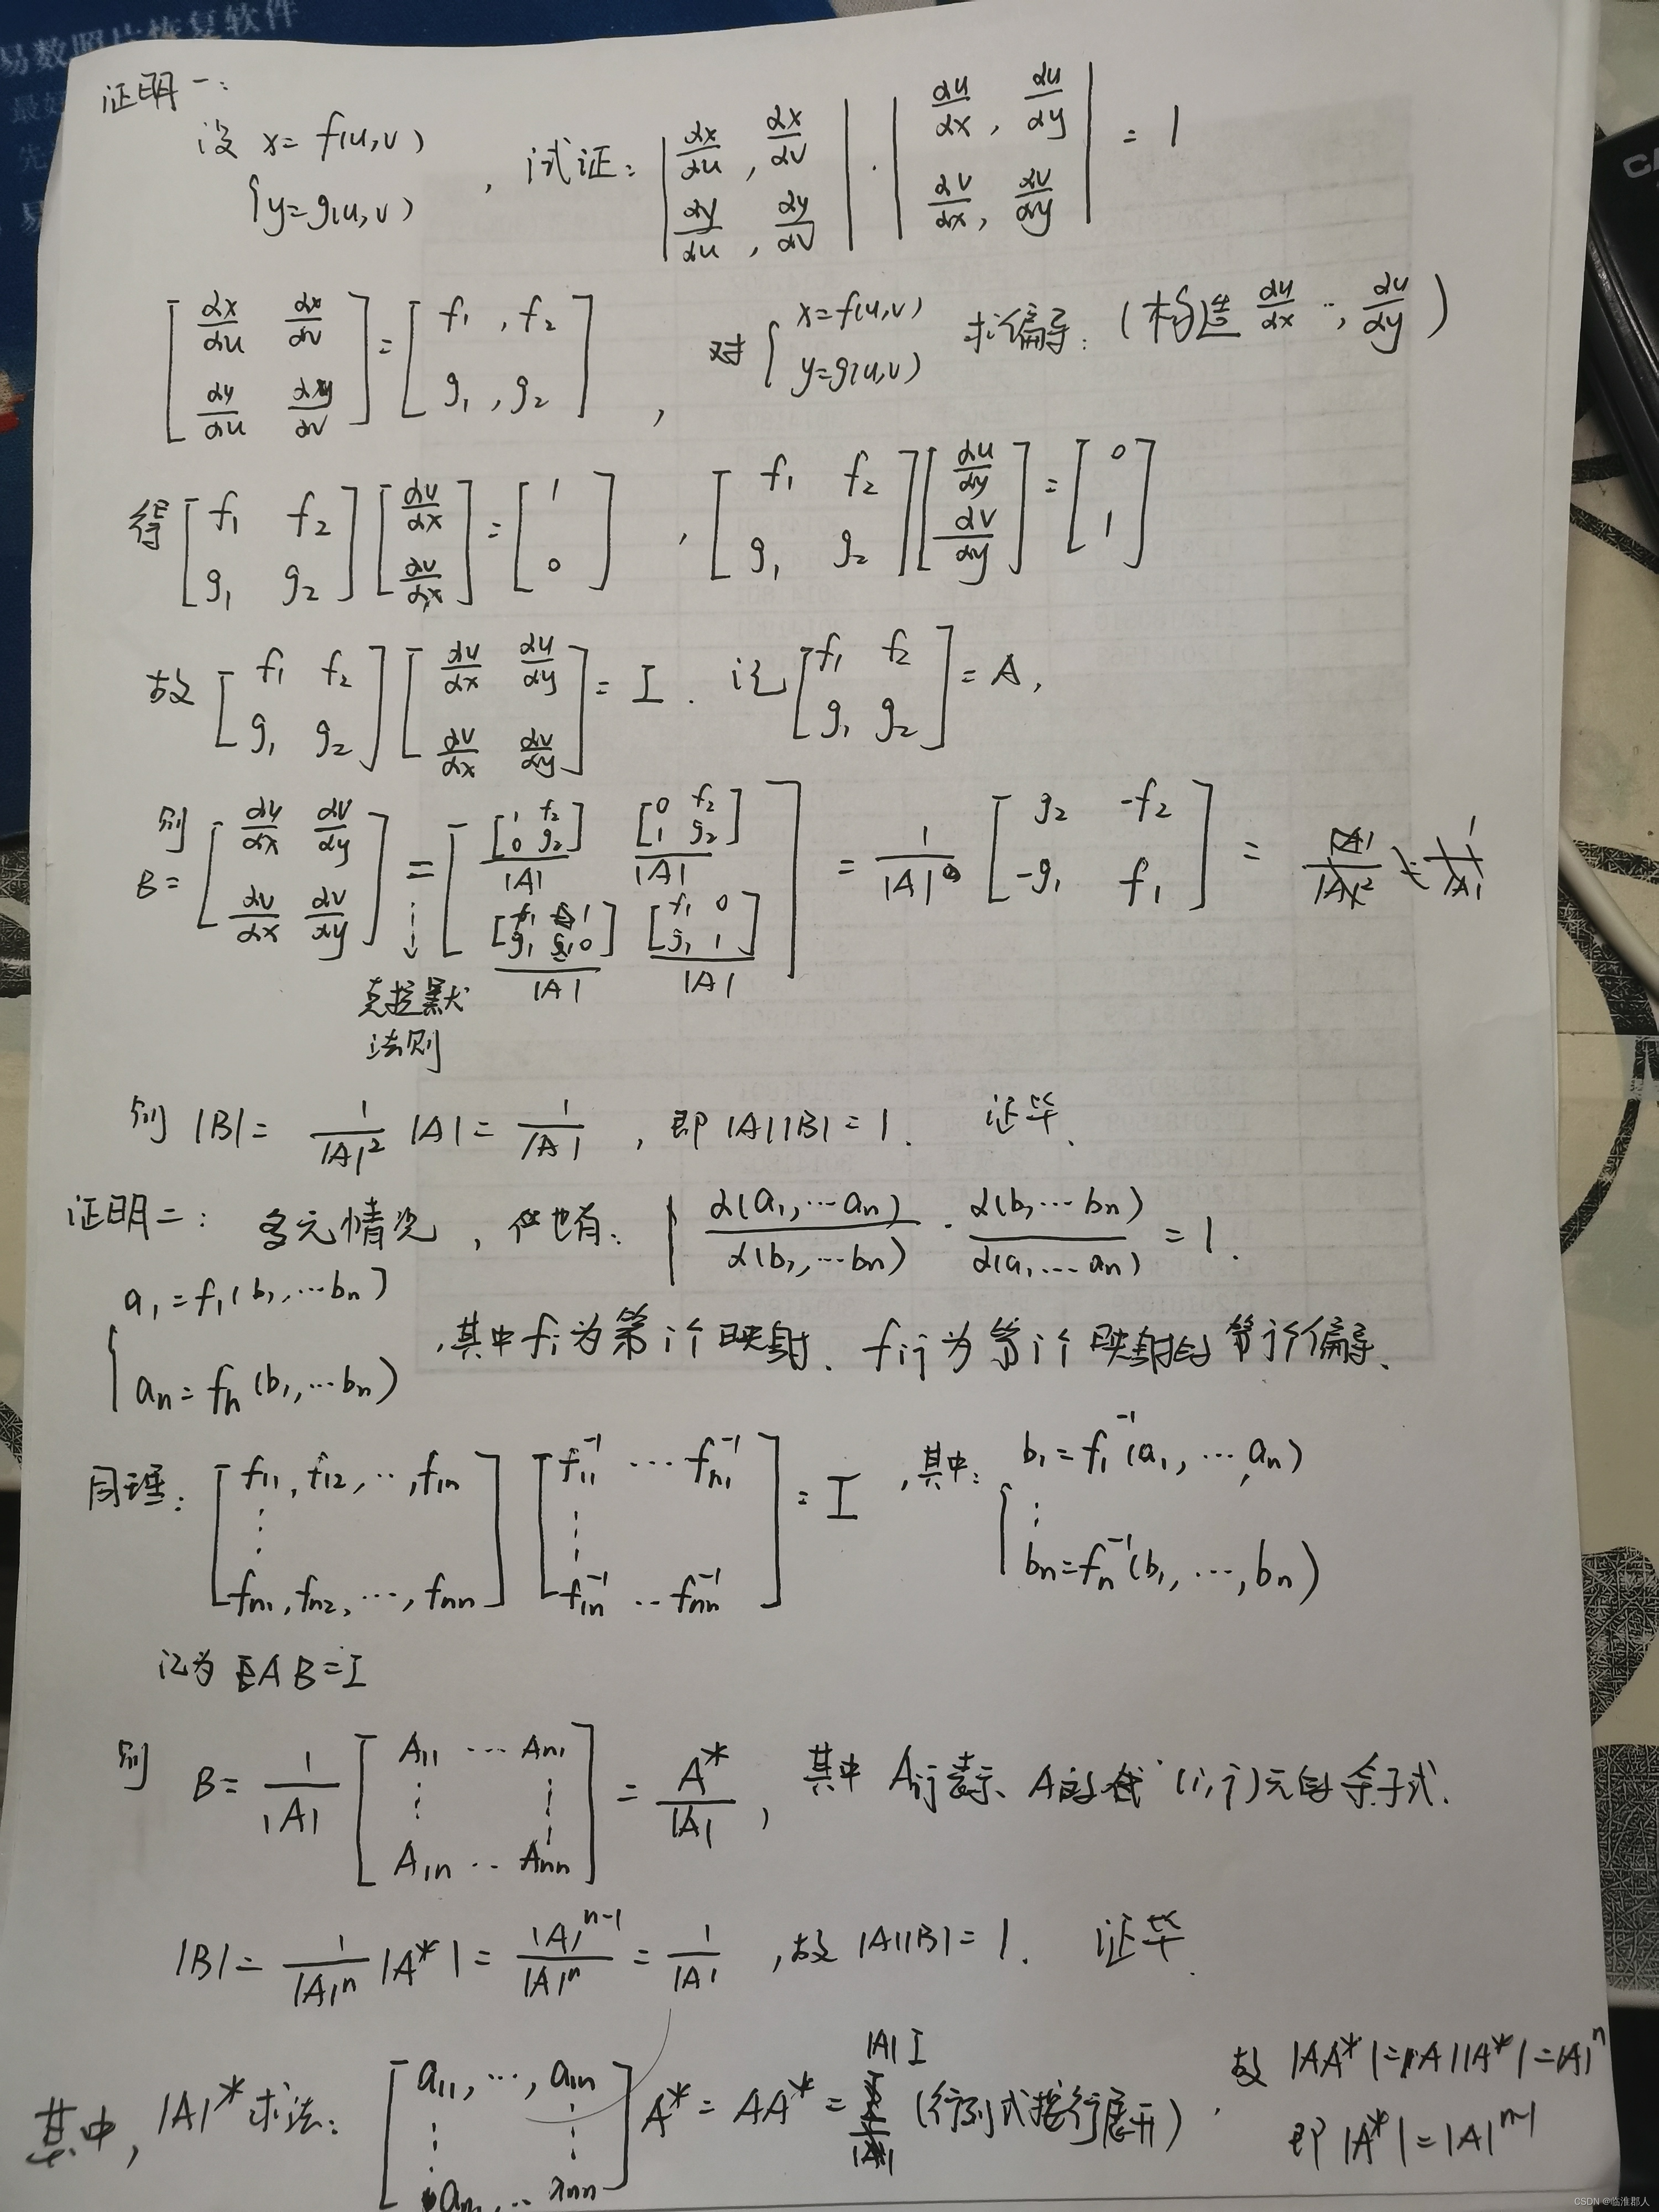 易数照片恢复软件
最好
先
易
CA
证明一:
设 x=f(u,v) , 试证: |dx/du, dx/dv; dy/du, dy/dv| · |du/dx, du/dy; dv/dx, dv/dy| = 1
{y=g(u,v)
[dx/du dx/dv; dy/du dy/dv] = [f₁, f₂; g₁, g₂] , 对 {x=f(u,v) y=g(u,v) 求偏导: (构造 du/dx ··, du/dy)
得 [f₁ f₂; g₁ g₂][du/dx; dv/dx] = [1; 0] , [f₁ f₂; g₁ g₂][du/dy; dv/dy] = [0; 1]
故 [f₁ f₂; g₁ g₂][du/dx du/dy; dv/dx dv/dy] = I. 记 [f₁ f₂; g₁ g₂] = A,
则 B= [du/dx dv/dy; dv/dx dv/dy] = [[1 f₂; 0 g₂]/|A| [0 f₂; 1 g₂]/|A|; [f₁ 1; g₁ 0]/|A| [f₁ 0; g₁ 1]/|A|] = 1/|A| [g₂ -f₂; -g₁ f₁] =
克拉默
法则
则 |B|= 1/|A|² |A| = 1/|A| , 即 |A||B|=1. 证毕.
证明二: 多元情况, 也有: | d(a₁,…aₙ)/d(b₁,…bₙ) · d(b,…bₙ)/d(a₁…aₙ) = 1.
a₁=f₁(b₁,…bₙ)
{aₙ=fₙ(b₁,…bₙ) , 其中fᵢ为第i个映射. fᵢⱼ为第i个映射的第j个偏导.
同理: [f₁₁, f₁₂, ··, f₁ₙ; ⋮ fₙ₁, fₙ₂, …, fₙₙ] [f₁₁⁻¹ … fₙ₁⁻¹; ⋮ f₁ₙ⁻¹ ·· fₙₙ⁻¹] = I , 其中: {b₁=f₁⁻¹(a₁, …, aₙ) ⋮ bₙ=fₙ⁻¹(b₁, …, bₙ)
记为 AB=I
则 B= 1/|A| [A₁₁ … Aₙ₁; ⋮ ⋮ A₁ₙ ·· Aₙₙ] = A*/|A| , 其中 Aᵢⱼ表示 A的 (i,j)元的余子式.
|B|= 1/|A|ⁿ |A*| = |A|ⁿ⁻¹/|A|ⁿ = 1/|A| , 故 |A||B|=1. 证毕.
其中, |A|*求法: [a₁₁, …, a₁ₙ; ⋮ ⋮ aₙ₁ … aₙₙ] A* = AA* = |A|I (行列式按行展开), 故 |AA*|=|A||A*|=|A|ⁿ
即 |A*|=|A|ⁿ⁻¹
CSDN @临淮郡人